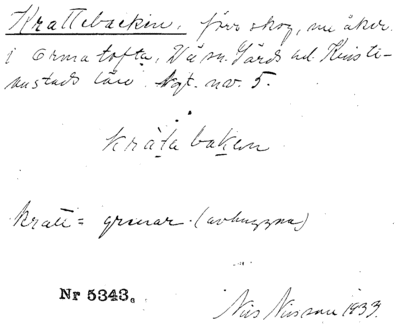 Krattebacken, förr skog, nu åker
i Ormatofta, Vä sn. Gärds hd. Kristi-
anstads län. Ngt. nv. 5.
krata baken
kratt = grenar (avhuggna)
Nr 5343
Nils Nilsson 1933.